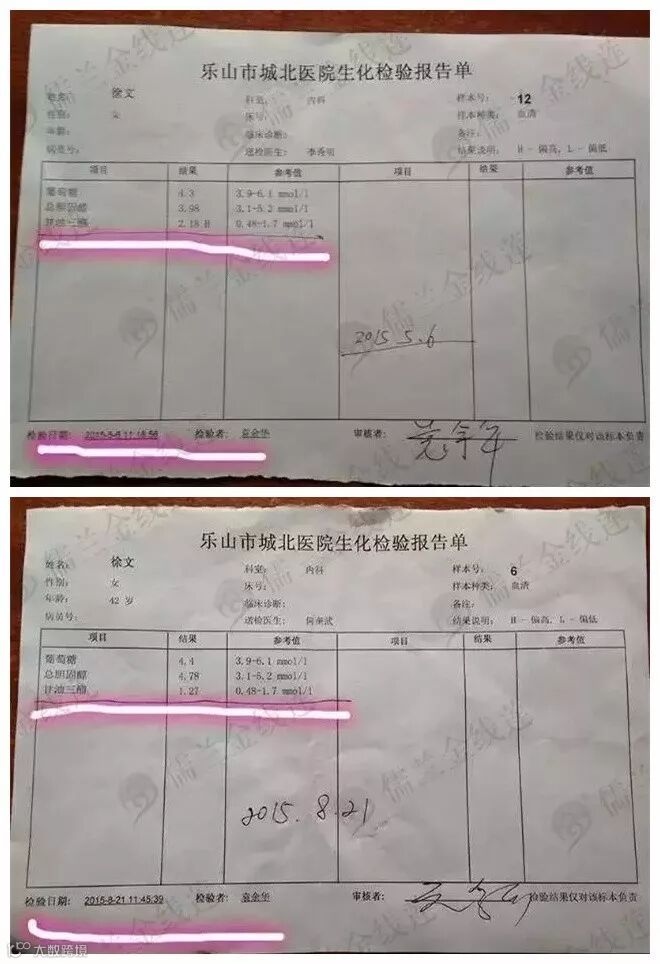 乐山市城北医院生化检验报告单
姓名: 徐文 科室: 内科 样本号: 12
性别: 女 床号: 样本种类: 血清
年龄: 临床诊断: 备注:
病员号: 送检医生: 结果说明: H－偏高, L－偏低
项目 结果 参考值 项目 结果 参考值
葡萄糖 4.3 3.9-6.1 mmol/l
总胆固醇 3.98 3.1-5.2 mmol/l
甘油三酯 2.18 H 0.48-1.7 mmol/l
2015 5.6
检验日期: 检验者: 袁金华 审核者: 检验结果仅对该标本负责
乐山市城北医院生化检验报告单
姓名: 徐文 科室: 内科 样本号: 6
性别: 女 床号: 样本种类: 血清
年龄: 42 岁 临床诊断: 备注:
病员号: 送检医生: 结果说明: H－偏高, L－偏低
项目 结果 参考值 项目 结果 参考值
葡萄糖 4.4 3.9-6.1 mmol/l
总胆固醇 4.78 3.1-5.2 mmol/l
甘油三酯 1.27 0.48-1.7 mmol/l
2015.8.21
检验日期: 2015-8-21 11:45:39 检验者: 袁金华 审核者: 检验结果仅对该标本负责
儒兰金线莲
大数跨境